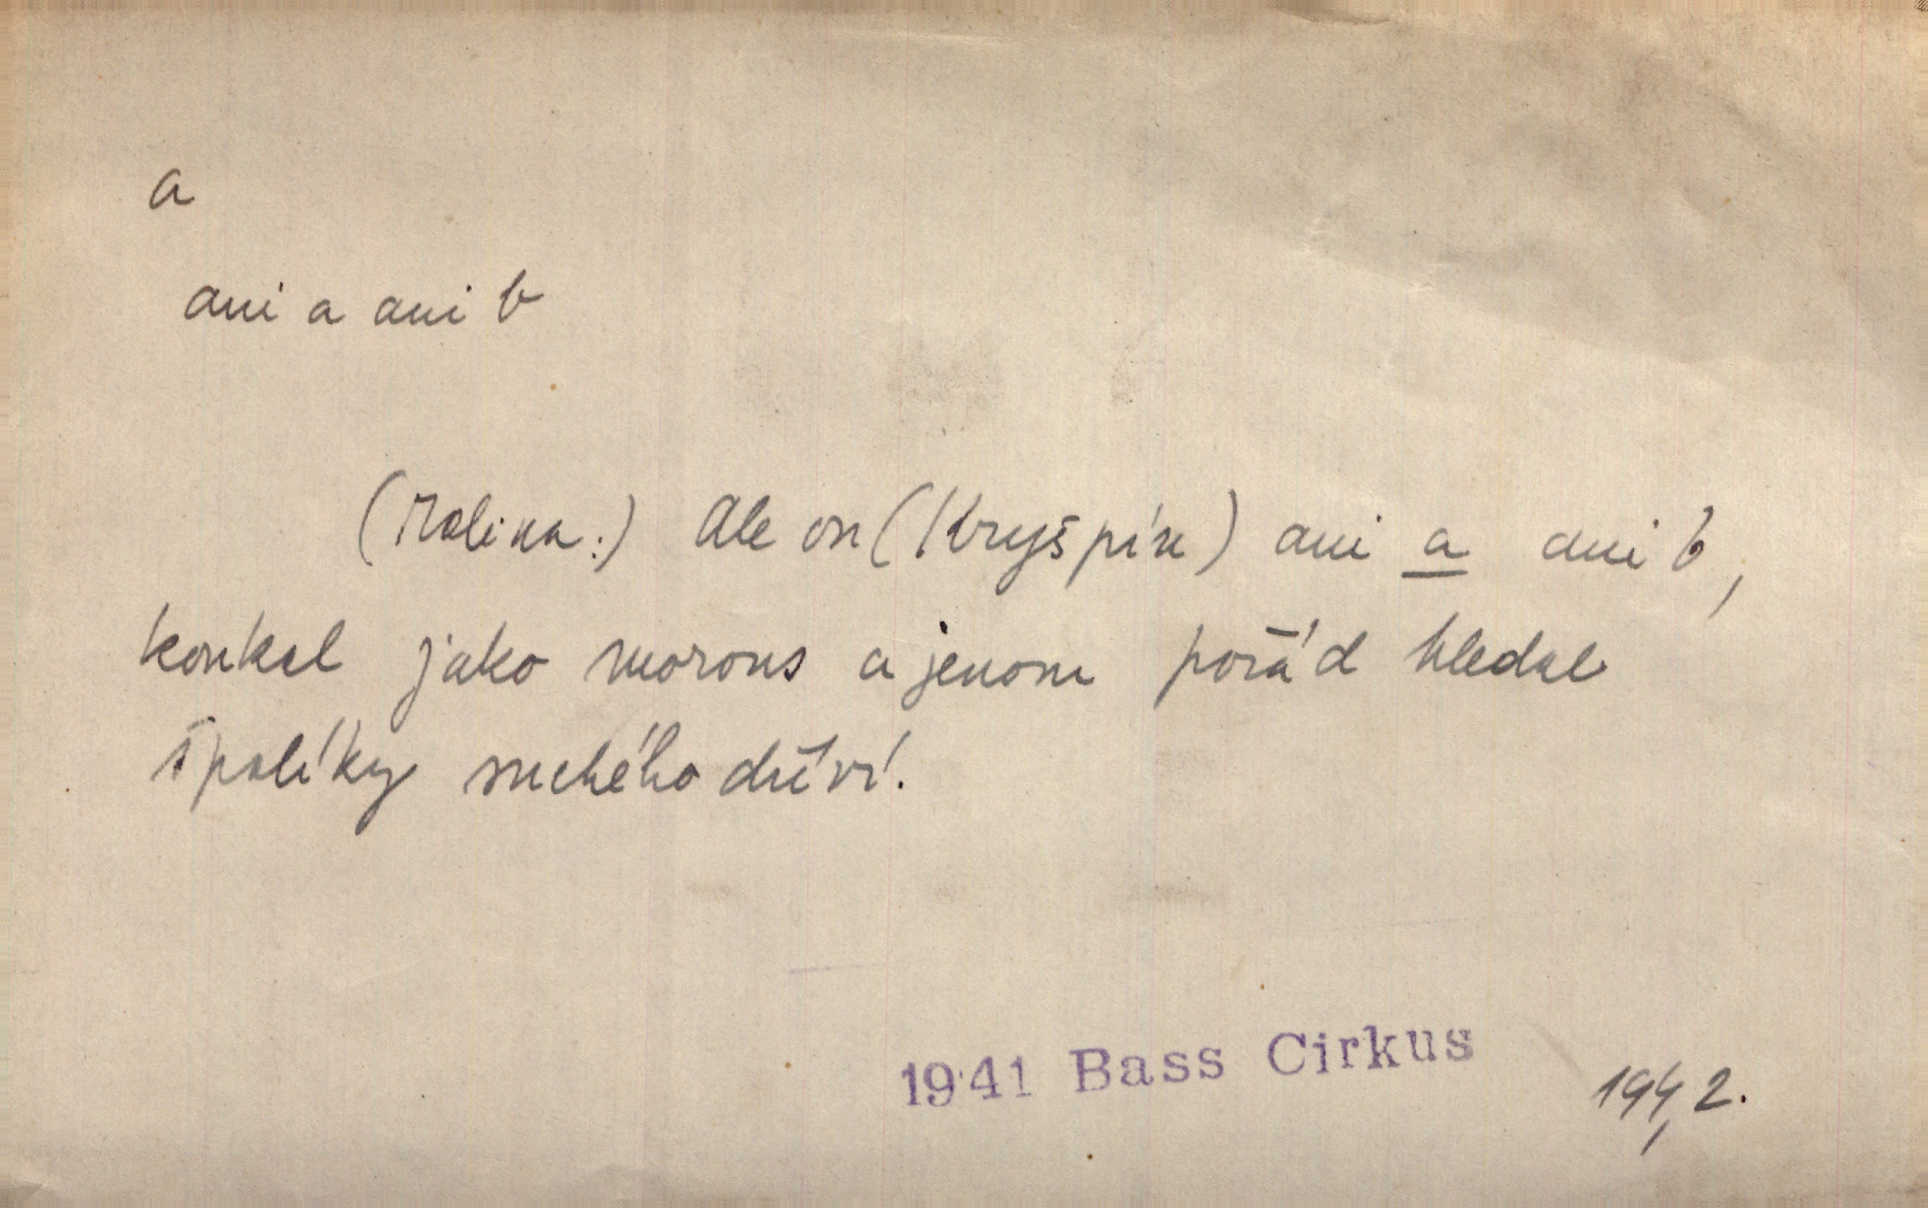 a
ani a ani b
(Malina:) Ale on (Kryšpín) ani a ani b,
koukal jako morous a jenom pořád hledal
špalíky suchého dříví.
1941 Bass Cirkus
194, 2.